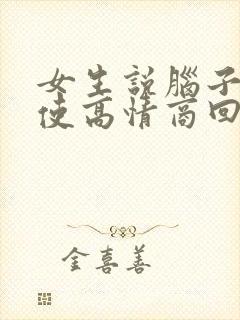 女生説腦子
使高情商回
金喜善